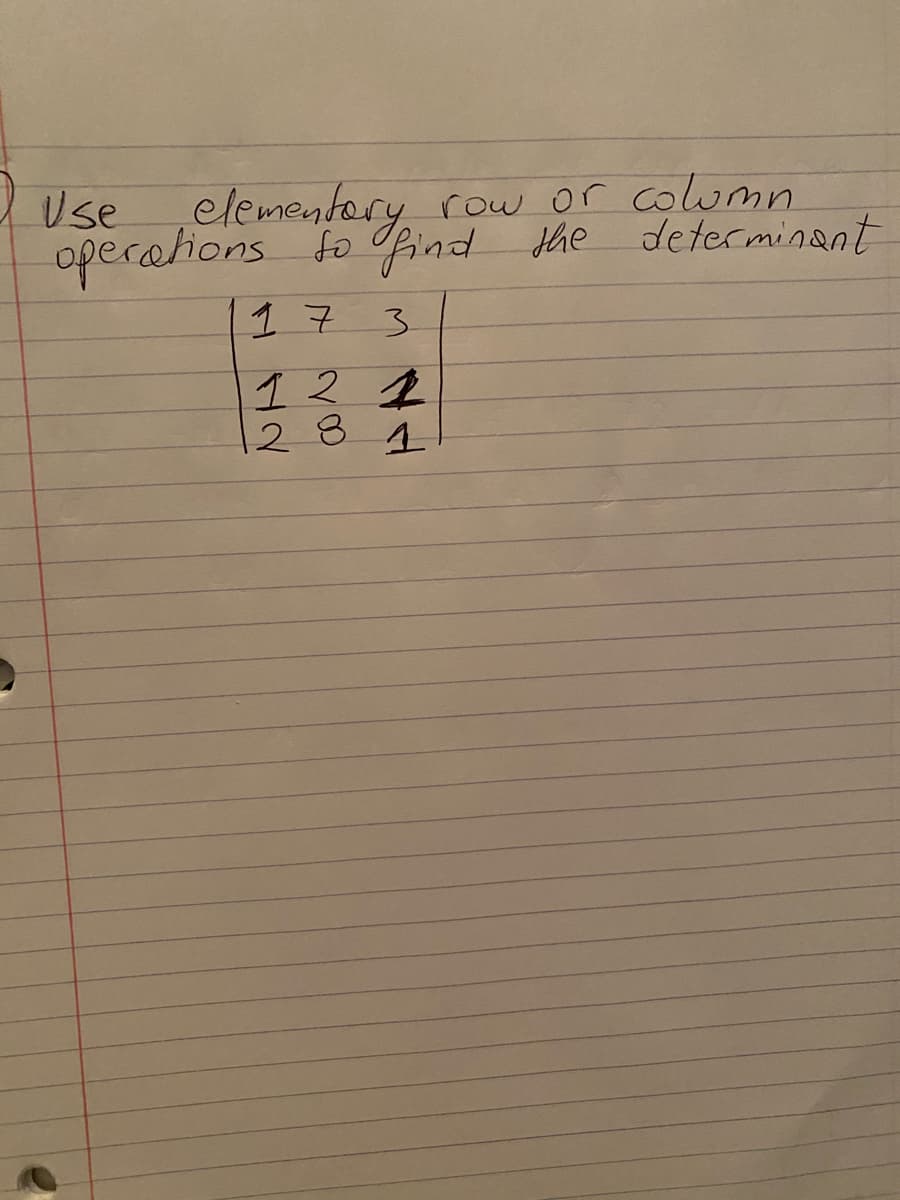 Use elementary row or column
operations to find the determinant
1 7 3
1 2 1
2 8 1